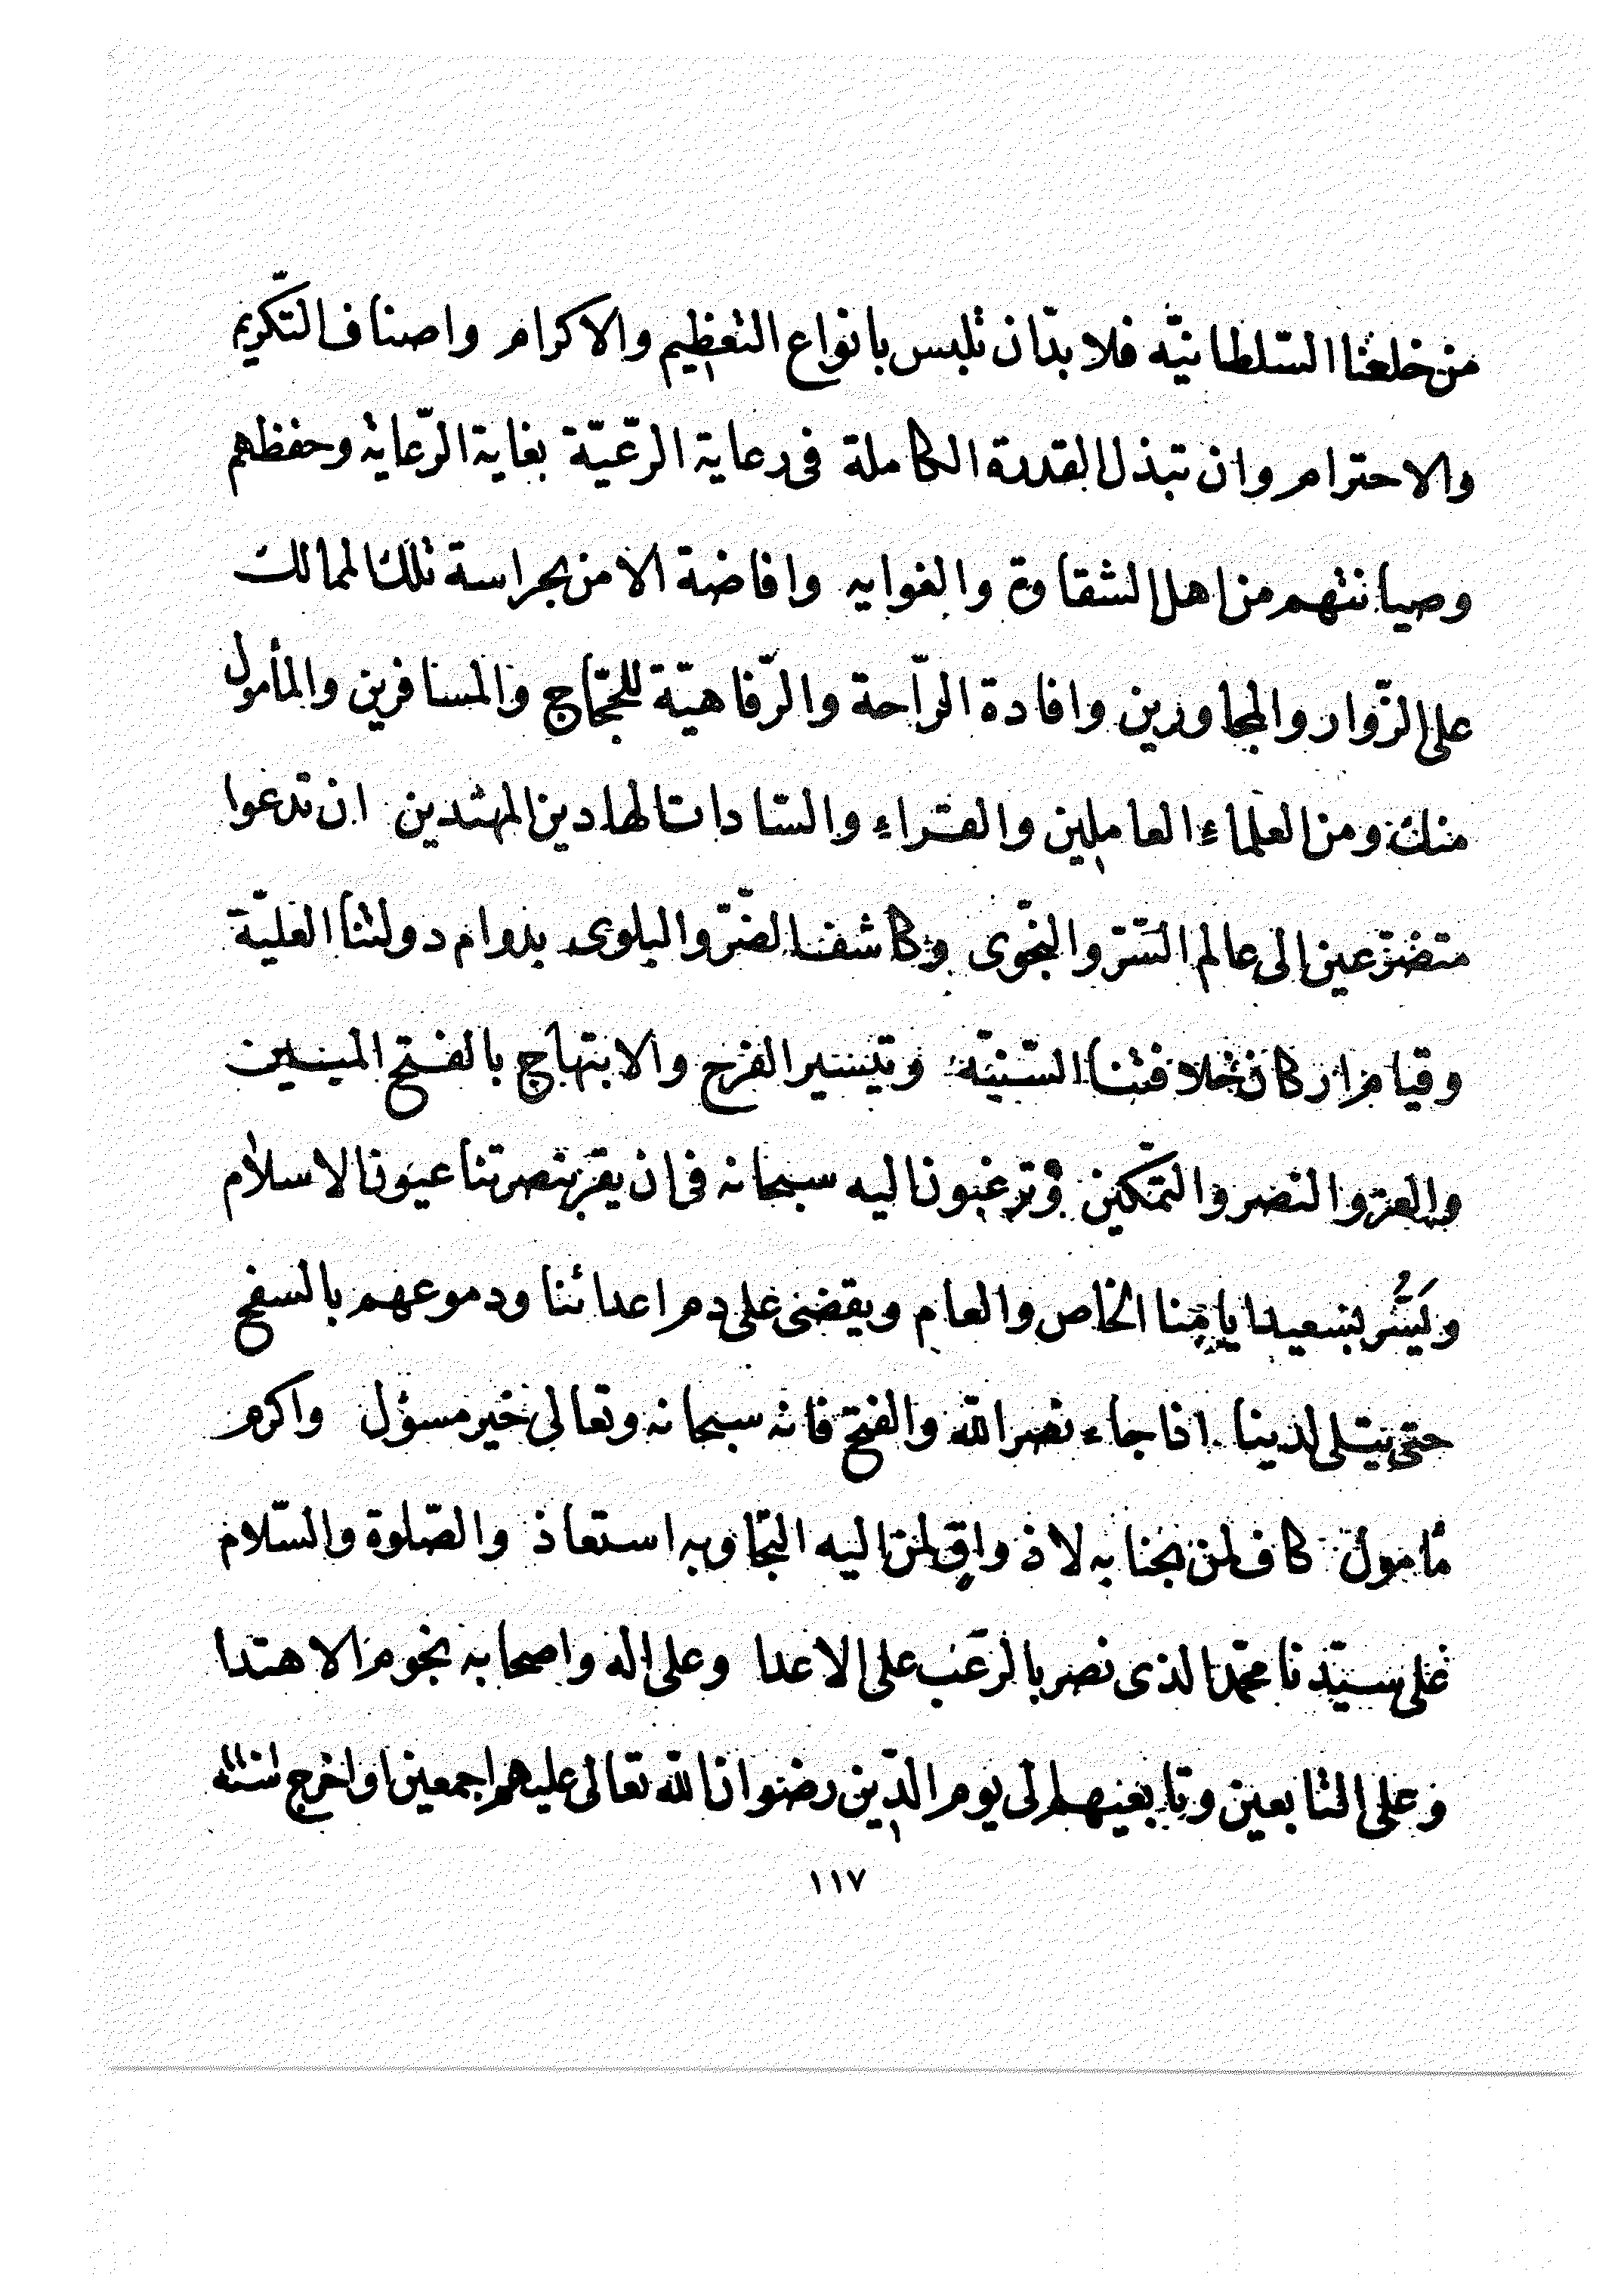 من خلعتنا السّلطانيّه فلا بدّ ان تلبس بانواع التعظيم والاكرام واصناف التّكريم
والاحترام وان تبذل القدرة الكاملة فى رعاية الرّعيّة بغاية الرّعاية وحفظهم
وصيانتهم من اهل الشقاوة والغوايه وافاضة الامن بحراسة تلك الممالك
على الزّوار والمجاورين وافادة الرّاحة والرّفاهيّة للحجّاج والمسافرين والمأمول
منك ومن العلماء العاملين والفقراء والسّادات الهادين المهتدين ان تدعوا
متضرّعين الى عالم السّرّ والنّجوى وكاشف الضّرّ والبلوى بدوام دولتنا العليّة
وقيام اركان خلافتنا السّنيّة وتيسير الفرج والابتهاج بالفتح المبين
والعز والنصر والتّمكين وترغبون اليه سبحانه فى ان يقر بنصرتنا عيون الاسلام
ويَسُّر بسعيد ايامنا الخاص والعام ويقضى على دم اعدائنا ودموعهم بالسفح
حتى يتلى لدينا اذا جاء نصر الله والفتح فانه سبحانه وتعالى خير مسؤل واكرم
مأمول كاف لمن بجنابه لاذ واقٍ لمن اليه التجا وبه استعاذ والصّلوة والسّلام
على سيّدنا محمّد الذى نصر بالرّعب على الاعدا وعلى اله واصحابه نجوم الاهتدا
وعلى التابعين وتابعيهم الى يوم الدّين رضوان الله تعالى عليهم اجمعين واخرج
١١٧